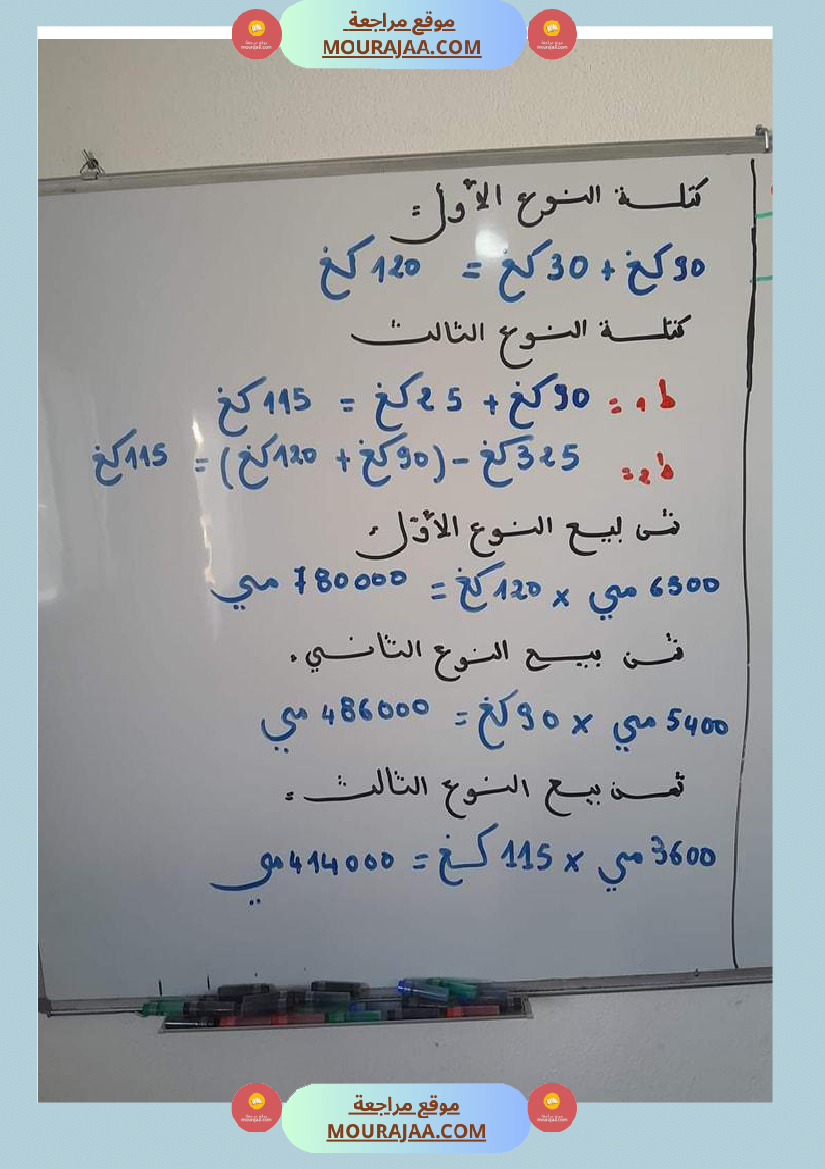 موقع مراجعة
MOURAJAA.COM
كتلة النوع الأول =
90 كغ + 30 كغ = 120 كغ
كتلة النوع الثالث
ط1 = 90 كغ + 25 كغ = 115 كغ
ط2 = 325 كغ - (90 كغ + 120 كغ) = 115 كغ
ثمن بيع النوع الأول
6500 مي × 120 كغ = 780000 مي
ثمن بيع النوع الثاني .
5400 مي × 90 كغ = 486000 مي
ثمن بيع النوع الثالث =
3600 مي × 115 كغ = 414000 مي
موقع مراجعة
MOURAJAA.COM